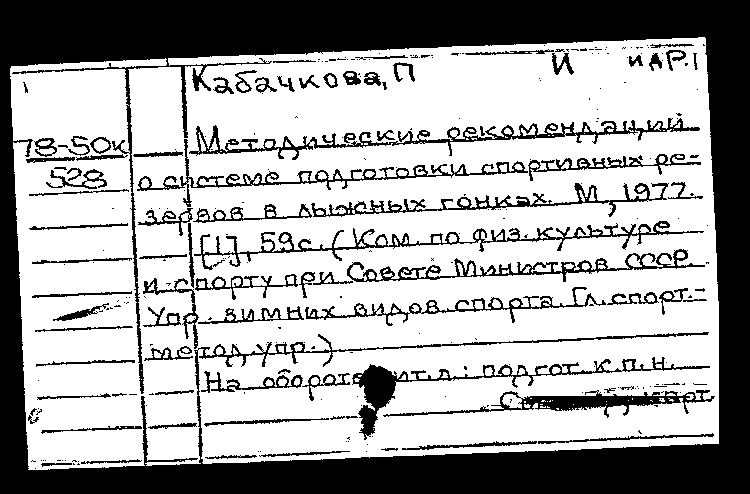 Кабачкова, П И ИАР.1
78-50к Методические рекомендации
528 о системе подготовки спортивных ре-
зервов в лыжных гонках. М, 1977.
[1], 59с. (Ком. по физ. культуре
и спорту при Совете Министров СССР.
Упр. зимних видов спорта. Гл. спорт.-
метод. упр.)
На обороте тит.л.: подгот. к.п.н.